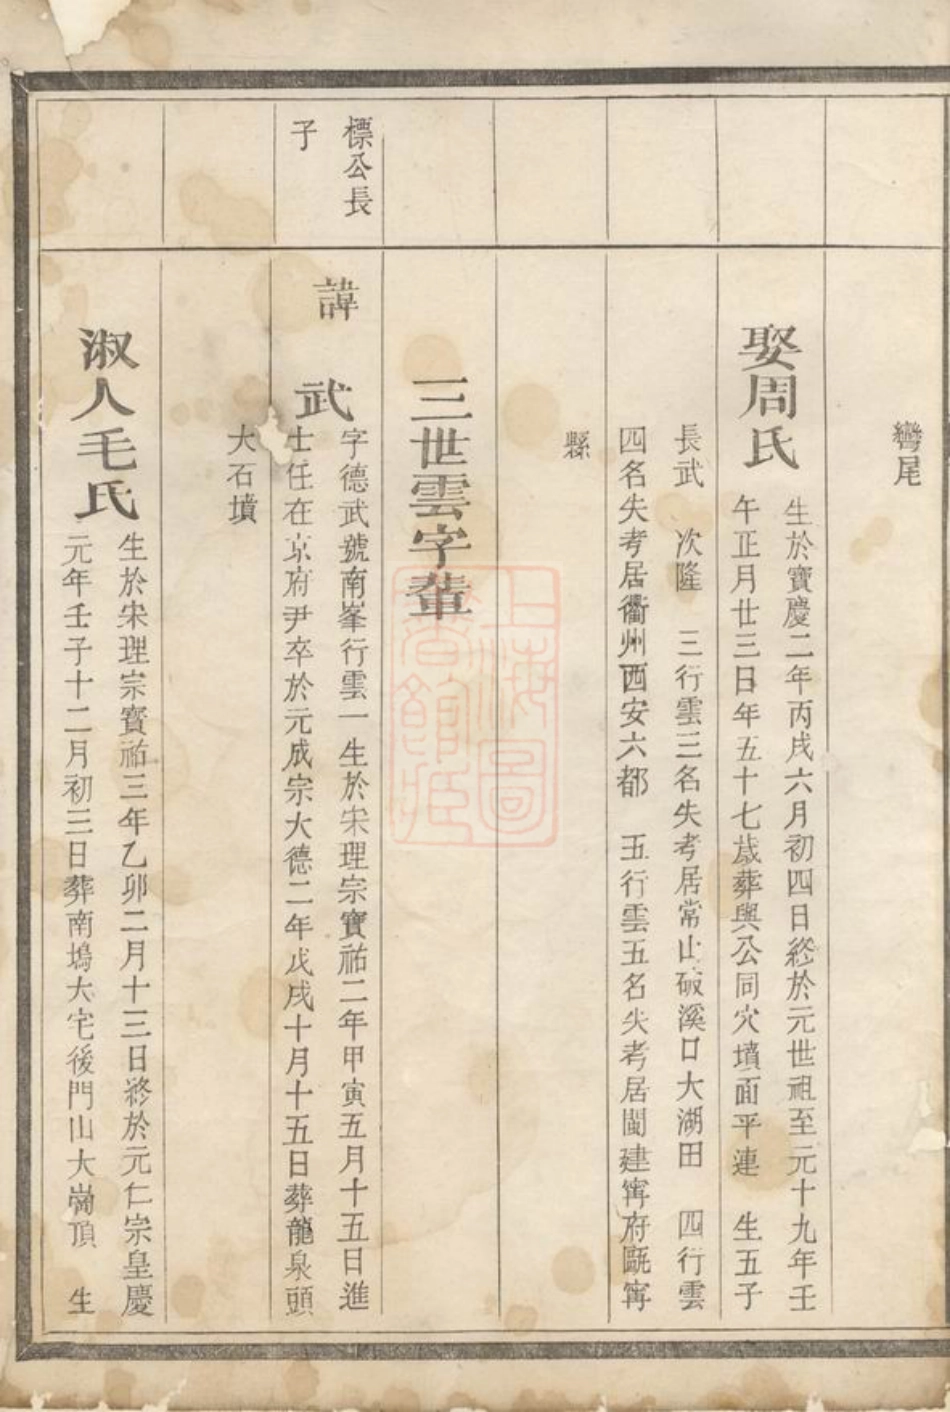 彎尾
娶周氏
生於寶慶二年丙戌六月初四日終於元世祖至元十九年壬
午正月廿三日年五十七歲葬與公同穴墳面平連　生五子
長武　次隆　三行雲三名失考居常山破溪口大湖田　四行雲
四名失考居衢州西安六都　五行雲五名失考居閩建寧府甌寧
縣
三世雲字輩
標公長
子
諱　武
字德武號南峯行雲一生於宋理宗寶祐二年甲寅五月十五日進
士任在京府尹卒於元成宗大德二年戊戌十月十五日葬龍泉頭
大石墳
淑人毛氏
生於宋理宗寶祐三年乙卯二月十三日終於元仁宗皇慶
元年壬子十二月初三日葬南塢大宅後門山大崗頂　生
上海圖
書館藏